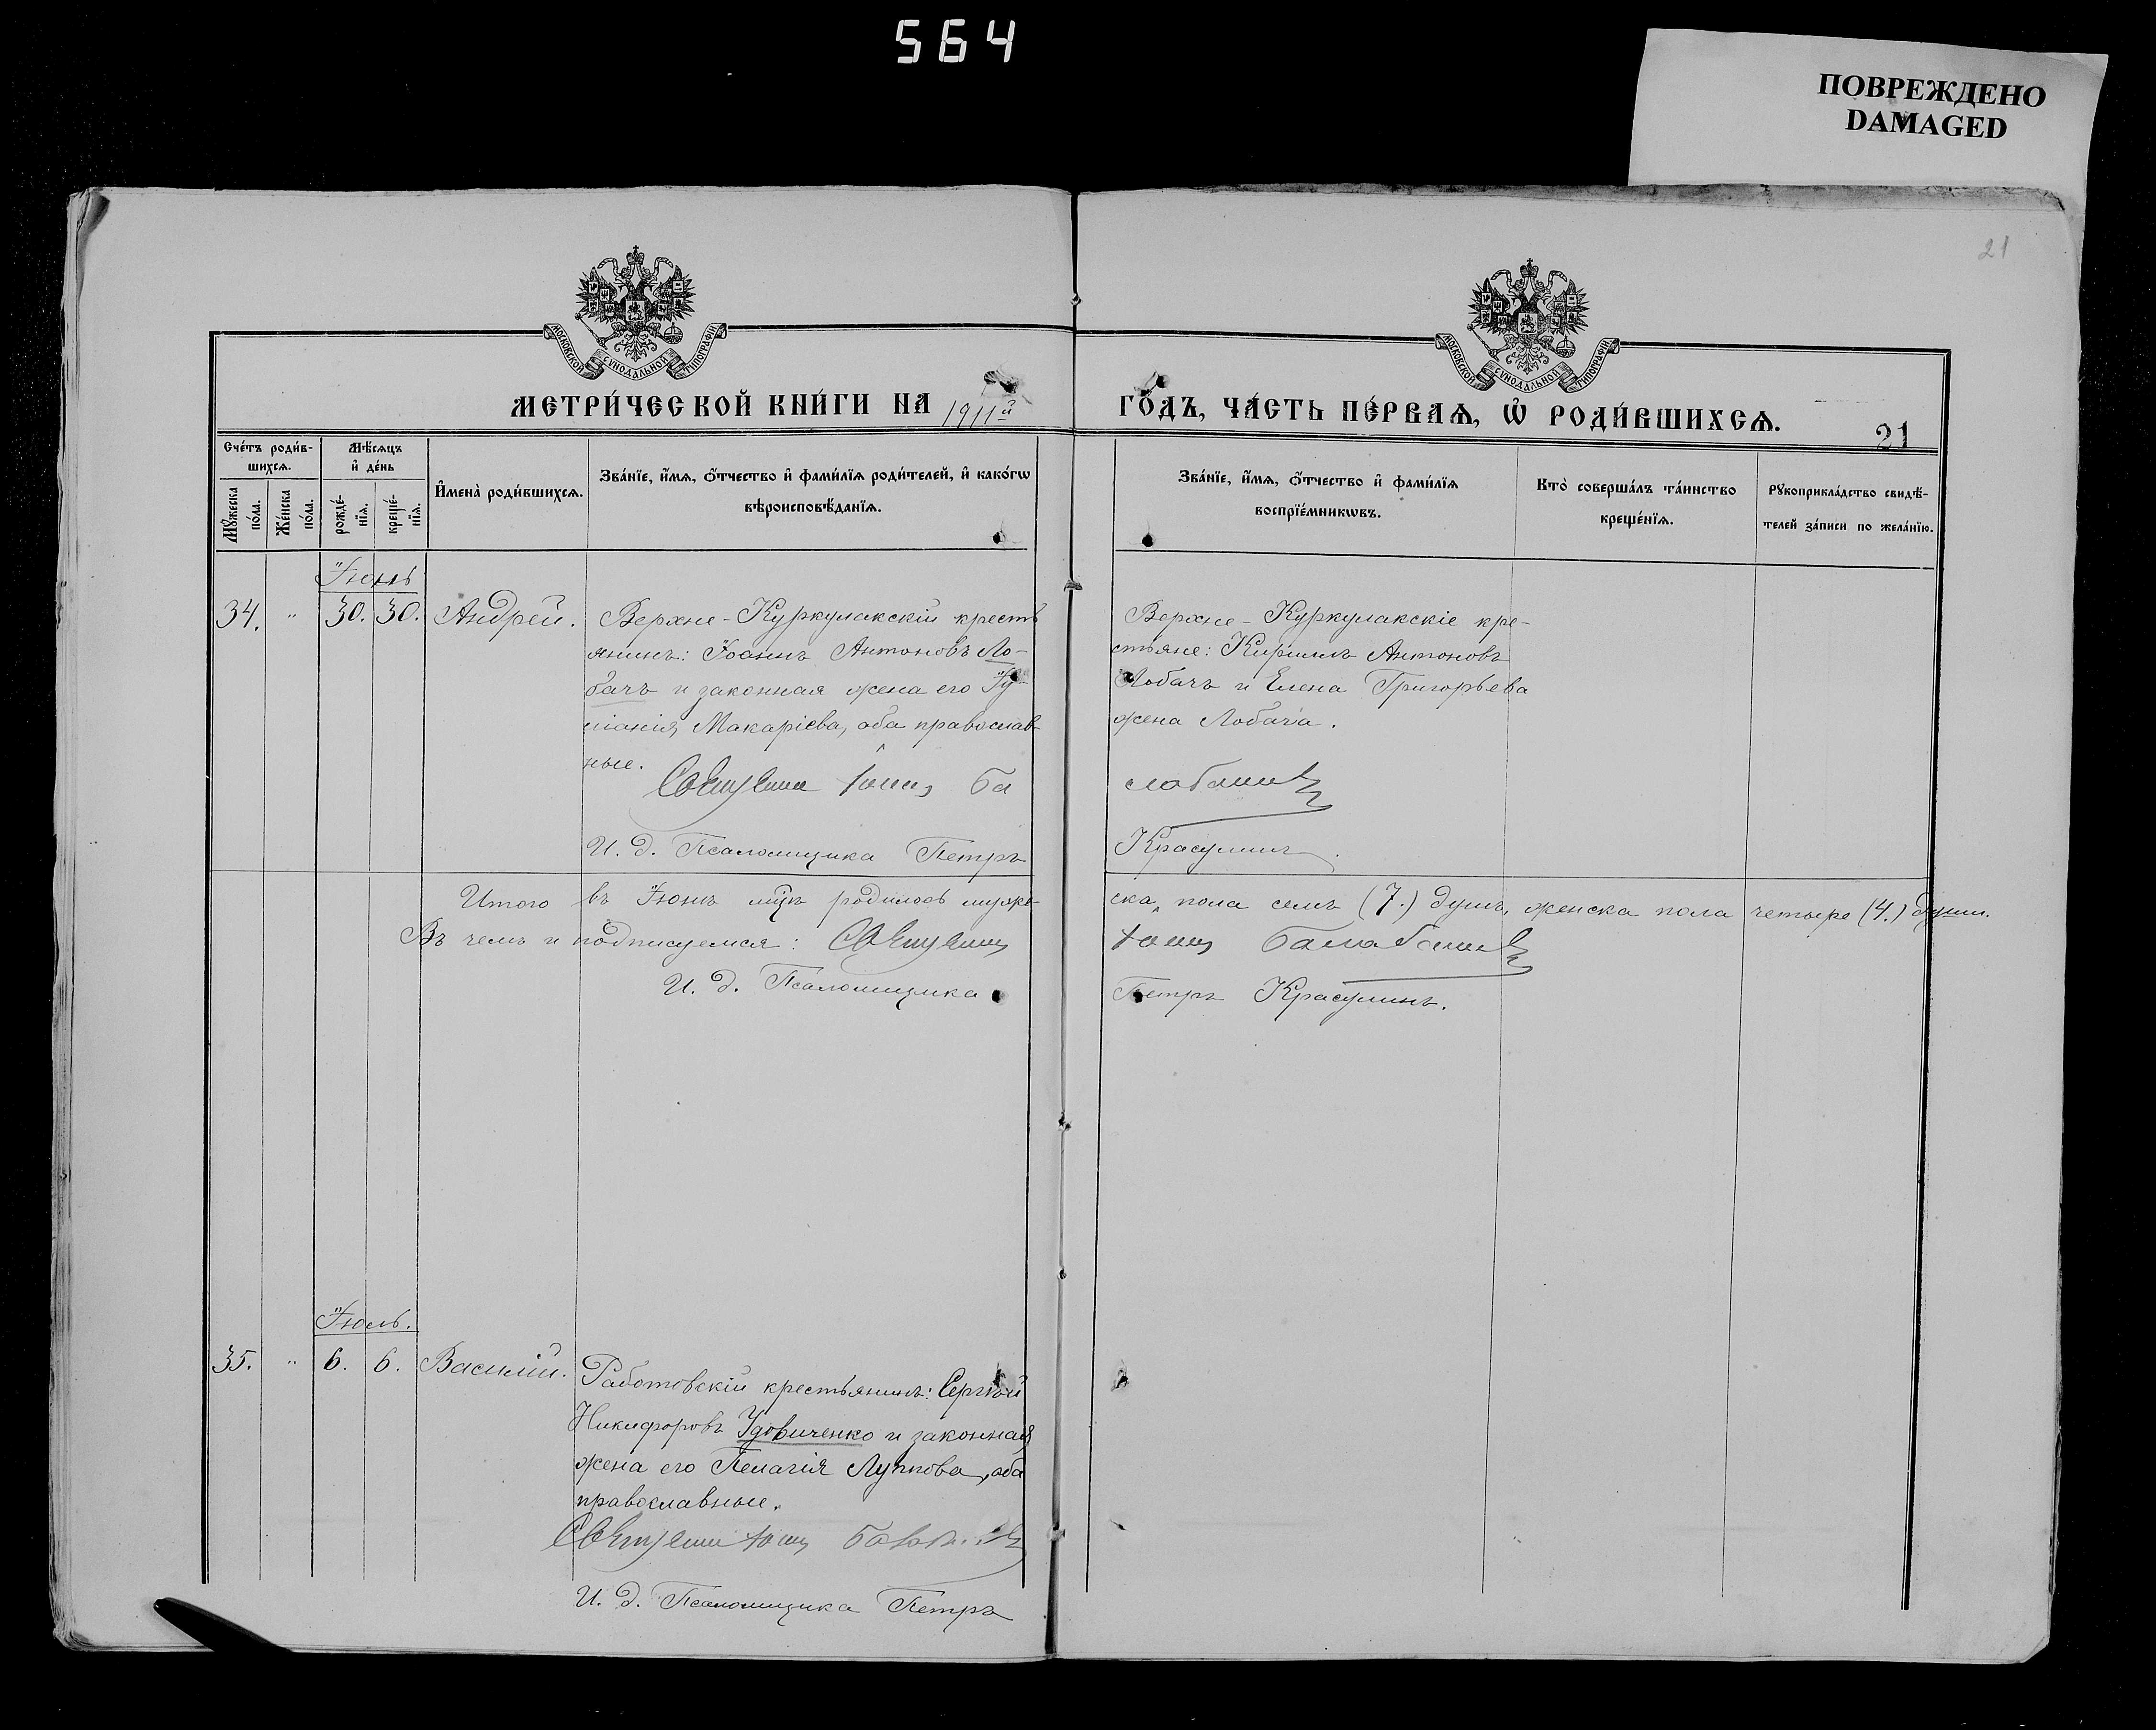 564
ПОВРЕЖДЕНО
DAMAGED
21
МОСКОВСКОЙ СѴНОДАЛЬНОЙ ТИПОГРАФІИ
МОСКОВСКОЙ СѴНОДАЛЬНОЙ ТИПОГРАФІИ
МЕТРИ́ЧЕСКОЙ КНИ́ГИ НА 1911й
ГО́ДЪ, ЧА́СТЬ ПЕ́РВАѦ, Ѽ РОДИ́ВШИХСѦ.
21
Сче́тъ роди́в-
шихсѧ.
Мꙋ́жеска
по́ла.
Же́нска
по́ла.
Мѣ́сѧцъ
и҆ де́нь
рожде́-
нїѧ.
креще́-
нїѧ.
И҆мена̀ роди́вшихсѧ.
Зва́нїе, и҆́мѧ, ѻ҆́тчество и҆ фами́лїѧ роди́телей, и҆ како́гѡ
вѣроисповѣ́данїѧ.
Зва́нїе, и҆́мѧ, ѻ҆́тчество и҆ фами́лїѧ
воспрїе́мникѡвъ.
Кто̀ соверша́лъ та́инство
креще́нїѧ.
Рꙋкоприкла́дство свидѣ́-
телей за́писи по жела́нїю.
Іюнь
34. " 30. 30. Андрей.
Верхне-Куркулакскій кресть
янинъ: Іоаннъ Антоновъ Ло-
бачъ и законная жена его Іу
ліанія Макаріева, оба православ-
ные.
Священникъ Іоаннъ Ба
И. д. Псаломщика Петръ
Верхне-Куркулакскіе кре-
стьяне: Кириллъ Антоновъ
Лобачъ и Елена Григорьева
жена Лобача.
лабановъ
Красулинъ.
Итого въ Іюнѣ мцѣ родилось муже-
ска пола семь (7.) душъ, женска пола четыре (4.) души.
Въ чемъ и подписуемся: Священникъ
Іоаннъ Балабановъ
И. д. Псаломщика
Петръ Красулинъ.
Іюль.
35. " 6. 6. Василій.
Работовскій крестьянинъ: Сергѣй
Никифоровъ Удовиченко и законная
жена его Пелагія Луппова, оба
православные.
Священникъ Іоаннъ
И. д. Псаломщика Петръ